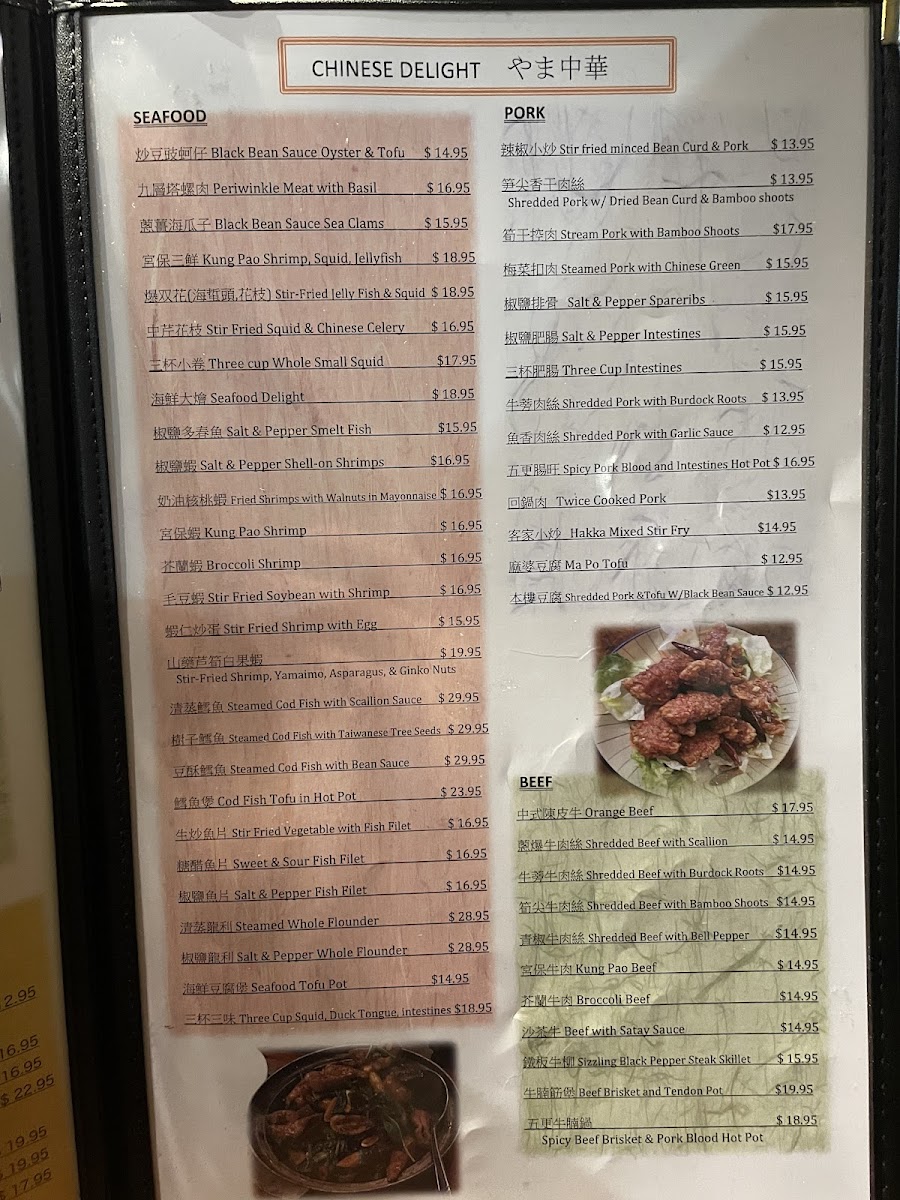 CHINESE DELIGHT やま中華
SEAFOOD
炒豆豉蚵仔 Black Bean Sauce Oyster & Tofu $ 14.95
九層塔螺肉 Periwinkle Meat with Basil $ 16.95
蔥薑海瓜子 Black Bean Sauce Sea Clams $ 15.95
宮保三鮮 Kung Pao Shrimp, Squid, Jellyfish $ 18.95
爆双花(海蜇頭,花枝) Stir-Fried Jelly Fish & Squid $ 18.95
中芹花枝 Stir Fried Squid & Chinese Celery $ 16.95
三杯小卷 Three cup Whole Small Squid $17.95
海鮮大燴 Seafood Delight $ 18.95
椒鹽多春魚 Salt & Pepper Smelt Fish $15.95
椒鹽蝦 Salt & Pepper Shell-on Shrimps $16.95
奶油核桃蝦 Fried Shrimps with Walnuts in Mayonnaise $ 16.95
宮保蝦 Kung Pao Shrimp $ 16.95
芥蘭蝦 Broccoli Shrimp $ 16.95
毛豆蝦 Stir Fried Soybean with Shrimp $ 16.95
蝦仁炒蛋 Stir Fried Shrimp with Egg $ 15.95
山藥芦筍白果蝦 $ 19.95
Stir-Fried Shrimp, Yamaimo, Asparagus, & Ginko Nuts
清蒸鱈魚 Steamed Cod Fish with Scallion Sauce $ 29.95
樹子鱈魚 Steamed Cod Fish with Taiwanese Tree Seeds $ 29.95
豆酥鱈魚 Steamed Cod Fish with Bean Sauce $ 29.95
鱈魚煲 Cod Fish Tofu in Hot Pot $ 23.95
生炒魚片 Stir Fried Vegetable with Fish Filet $ 16.95
糖醋魚片 Sweet & Sour Fish Filet $ 16.95
椒鹽魚片 Salt & Pepper Fish Filet $ 16.95
清蒸龍利 Steamed Whole Flounder $ 28.95
椒鹽龍利 Salt & Pepper Whole Flounder $ 28.95
海鮮豆腐煲 Seafood Tofu Pot $14.95
三杯三味 Three Cup Squid, Duck Tongue, intestines $18.95
PORK
辣椒小炒 Stir fried minced Bean Curd & Pork $ 13.95
笋尖香干肉絲 $ 13.95
Shredded Pork w/ Dried Bean Curd & Bamboo shoots
筍干控肉 Stream Pork with Bamboo Shoots $17.95
梅菜扣肉 Steamed Pork with Chinese Green $ 15.95
椒鹽排骨 Salt & Pepper Spareribs $ 15.95
椒鹽肥腸 Salt & Pepper Intestines $ 15.95
三杯肥腸 Three Cup Intestines $ 15.95
牛蒡肉絲 Shredded Pork with Burdock Roots $ 13.95
魚香肉絲 Shredded Pork with Garlic Sauce $ 12.95
五更腸旺 Spicy Pork Blood and Intestines Hot Pot $ 16.95
回鍋肉 Twice Cooked Pork $13.95
客家小炒 Hakka Mixed Stir Fry $14.95
麻婆豆腐 Ma Po Tofu $ 12.95
本樓豆腐 Shredded Pork &Tofu W/Black Bean Sauce $ 12.95
BEEF
中式陳皮牛 Orange Beef $ 17.95
蔥爆牛肉絲 Shredded Beef with Scallion $ 14.95
牛蒡牛肉絲 Shredded Beef with Burdock Roots $14.95
筍尖牛肉絲 Shredded Beef with Bamboo Shoots $14.95
青椒牛肉絲 Shredded Beef with Bell Pepper $14.95
宮保牛肉 Kung Pao Beef $ 14.95
芥蘭牛肉 Broccoli Beef $14.95
沙茶牛 Beef with Satay Sauce $14.95
鐵板牛柳 Sizzling Black Pepper Steak Skillet $ 15.95
牛腩筋煲 Beef Brisket and Tendon Pot $19.95
五更牛腩鍋 $ 18.95
Spicy Beef Brisket & Pork Blood Hot Pot
2.95
16.95
16.95
$ 22.95
$ 19.95
$ 19.95
$ 17.95